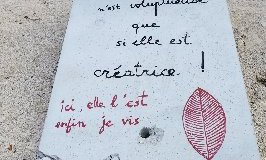 n'est voluptueuse
que
si elle est
créatrice !
ici, elle l'est
enfin je vis